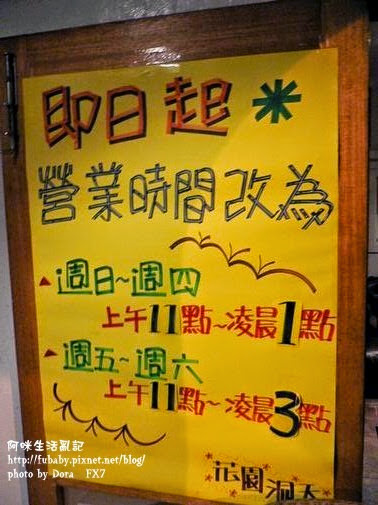 即日起
營業時間改為
週日~週四
上午11點~凌晨1點
週五~週六
上午11點~凌晨3點
花園洞天
阿咪生活亂記
http://fubaby.pixnet.net/blog/
photo by Dora FX7